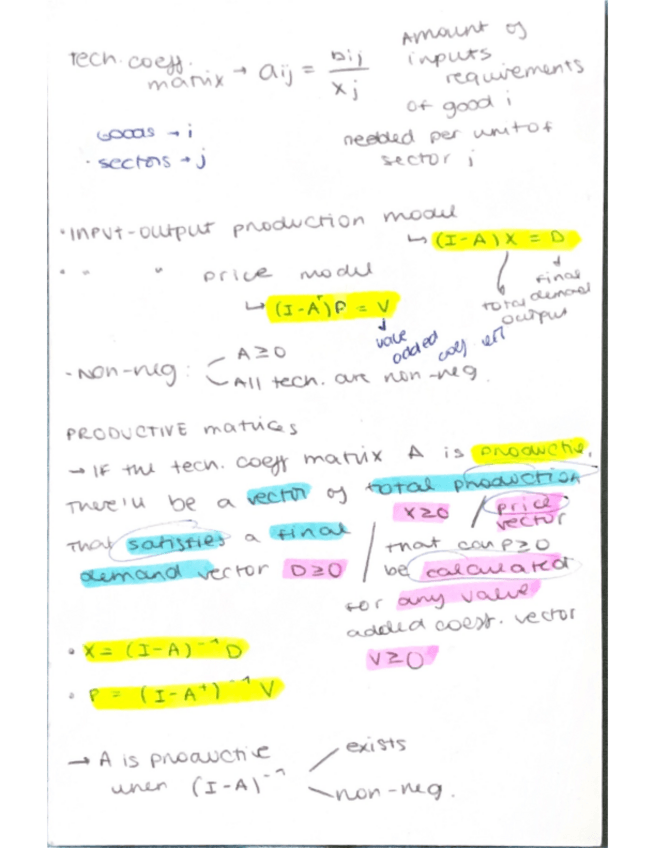 tech. coeff. matrix → aij = bij / xj
Amount of inputs requirements of good i needed per unit of sector j
Goods → i
· sectors → j
· INPUT-output production model
↳ (I-A)X = D
total output
final demand
· " " price model
↳ (I-Aᵗ)P = V
value added coef
· Non-neg:
A≥0
All tech. are non-neg.
PRODUCTIVE matrices
→ IF the tech. coeff matrix A is productive,
there'll be a vector of total production
X≥0 / price vector
that satisfies a final / that can P≥0
demand vector D≥0 / be calculated
for any value
added coest. vector
V≥0
· X = (I-A)⁻¹ D
· P = (I-Aᵗ)⁻¹ V
→ A is productive
when (I-A)⁻¹
exists
non-neg.